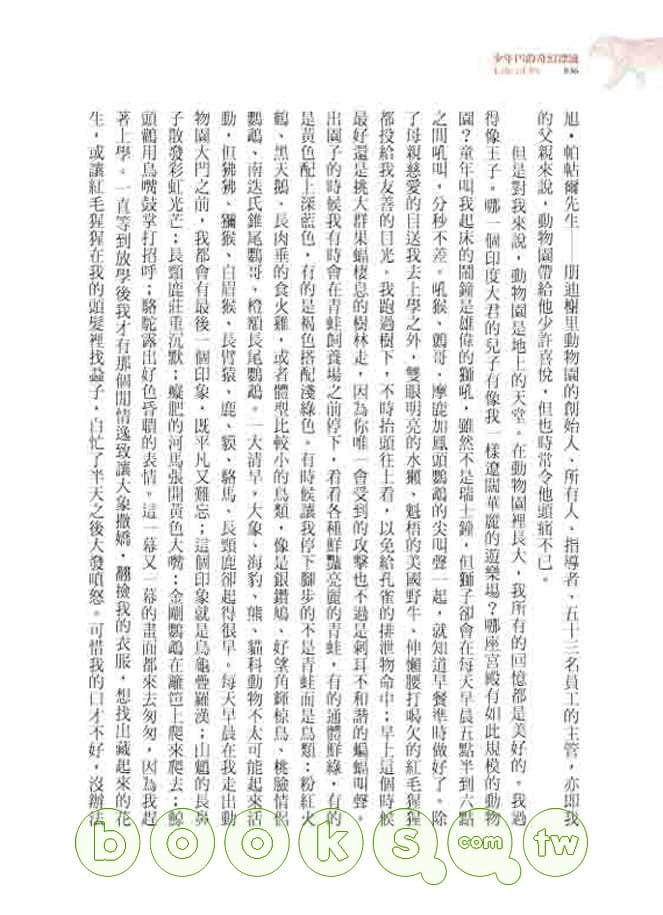 少年Pi的奇幻漂流
Life of Pi
036
旭・帕帖爾先生——朋迪榭里動物園的創始人、所有人、指導者、五十三名員工的主管,亦即我
的父親來說,動物園帶給他少許喜悅,但也時常令他頭痛不已。
但是對我來說,動物園是地上的天堂。在動物園裡長大,我所有的回憶都是美好的。我過
得像王子。哪一個印度大君的兒子有像我一樣遼闊華麗的遊樂場?哪座宮殿有如此規模的動物
園?童年叫我起床的鬧鐘是雄偉的獅吼,雖然不是瑞士鐘,但獅子卻會在每天早晨五點半到六點
之間吼叫,分秒不差。吼猴、鷯哥、摩鹿加鳳頭鸚鵡的尖叫聲一起,就知道早餐準時做好了。除
了母親慈愛的目送我去上學之外,雙眼明亮的水獺、魁梧的美國野牛、伸懶腰打呵欠的紅毛猩猩
都投給我友善的目光。我跑過樹下,不時抬頭往上看,以免給孔雀的排泄物命中;早上這個時候
最好還是挑大群果蝠棲息的樹林走,因為你唯一會受到的攻擊也不過是刺耳不和諧的蝙蝠叫聲。
出園子的時候我有時會在青蛙飼養場之前停下,看看各種鮮豔亮麗的青蛙,有的通體鮮綠,有的
是黃色配上深藍色,有的是褐色搭配淺綠色。有時候讓我停下腳步的不是青蛙而是鳥類:粉紅火
鶴、黑天鵝、長肉垂的食火雞,或者體型比較小的鳥類,像是銀鑽鳩、好望角輝椋鳥、桃臉情侶
鸚鵡、南迭氏錐尾鸚哥、橙額長尾鸚鵡。一大清早,大象、海豹、熊、貓科動物不太可能起來活
動,但狒狒、獼猴、白眉猴、長臂猿、鹿、貘、駱馬、長頸鹿卻起得很早。每天早晨在我走出動
物園大門之前,我都會有最後一個印象,既平凡又難忘;這個印象就是烏龜疊羅漢;山魈的長鼻
子散發彩虹光芒;長頸鹿莊重沉默;癡肥的河馬張開黃色大嘴;金剛鸚鵡在籬笆上爬來爬去;鯨
頭鸛用鳥嘴鼓掌打招呼;駱駝露出好色昏聵的表情。這一幕又一幕的畫面都來去匆匆,因為我趕
著上學。一直等到放學後我才有那個閒情逸致讓大象撒嬌,翻撿我的衣服,想找出藏起來的花
生,或讓紅毛猩猩在我的頭髮裡找蝨子,白忙了半天之後大發噴怒。可惜我的口才不好,沒辦法
books.com.tw